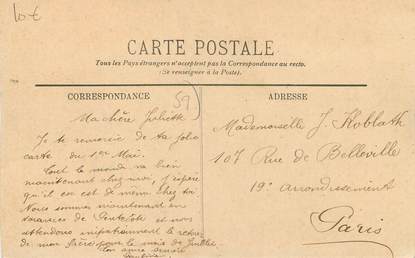 10 €
CARTE POSTALE
Tous les Pays étrangers n'acceptent pas la Correspondance au recto.
(Se renseigner à la Poste).
CORRESPONDANCE
59
Ma chère Juliette
Je te remercie de ta jolie
carte du 1er Mai.
Tout le monde va bien
maintenant chez nous, j'espère
qu'il en est de même chez toi
Nous sommes maintenant en
vacances de Pentecôte et nous
attendons impatiemment le retour
de mon frère pour le mois de Juillet.
Ton amie
ADRESSE
Mademoiselle J. Koblath
107 Rue de Belleville
19e arrondissement
Paris